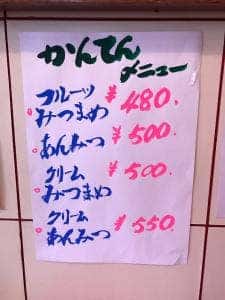 かんてん
メニュー
フルーツ
みつまめ ¥480.
あんみつ ¥500.
クリーム
みつまめ ¥500.
クリーム
あんみつ ¥550.